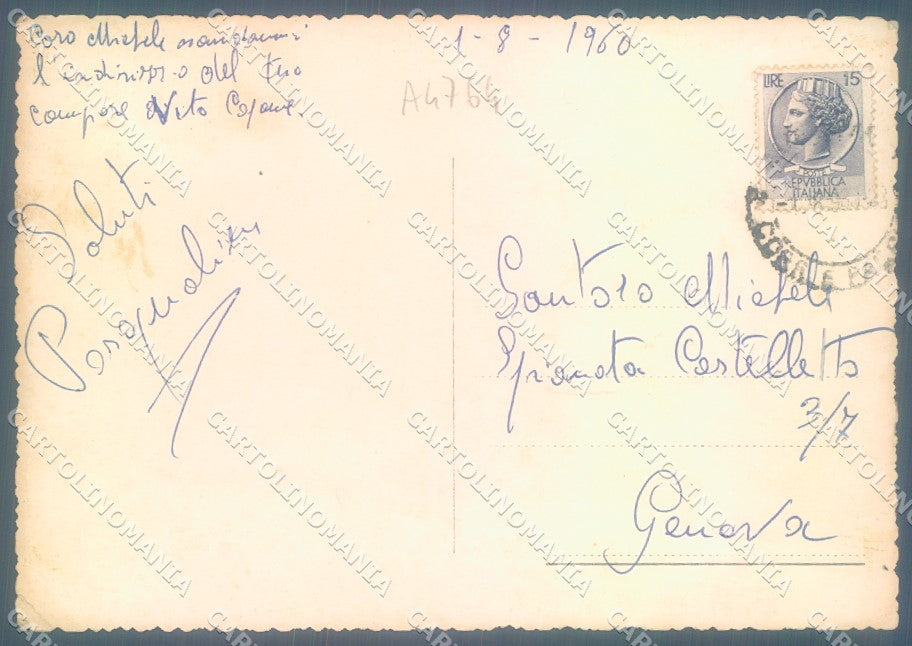 Caro Michele mandami
l'indirizzo del tuo
compare Vito
1-8-1960
A4764
LIRE 15
POSTE
REPVBBLICA
ITALIANA
Saluti
Santoro Michele
Spianata Castelletto
3/7
Genova
CARTOLINOMANIA